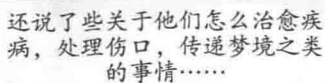 还说了些关于他们怎么治愈疾
病，处理伤口，传递梦境之类
的事情……